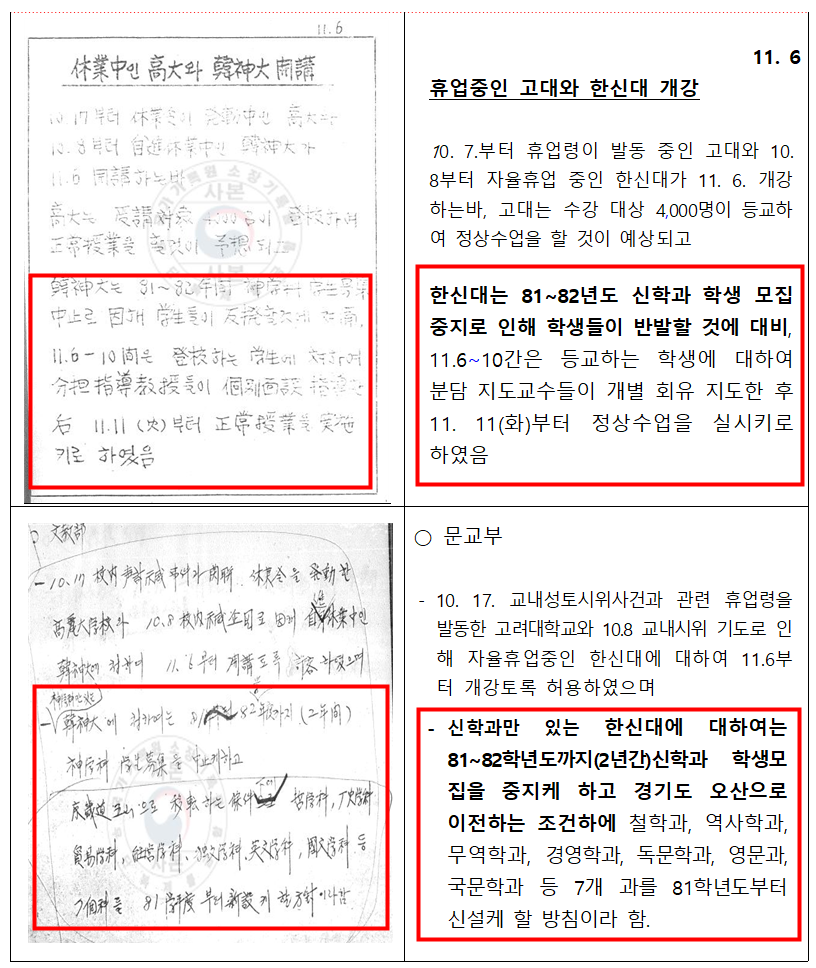 11.6
休業中인 高大와 韓神大 開講
10.17부터 休業令이 発動中인 高大와
10.8부터 自進休業中인 韓神大가
11.6 開講하는바
高大는 受講対象 4,000名이 登校하여
正常授業을 할것이 予想되고
韓神大는 81~82年間 神学科 学生募集
中止로 因해 学生들이 反撥할것에
11.6-10間은 登校하는 学生에 対하여
分担指導教授들이 個別面談
后 11.11(火)부터 正常授業을 実施
키로 하였음
사본
11. 6
휴업중인 고대와 한신대 개강
10. 7.부터 휴업령이 발동 중인 고대와 10.
8부터 자율휴업 중인 한신대가 11. 6. 개강
하는바, 고대는 수강 대상 4,000명이 등교하
여 정상수업을 할 것이 예상되고
한신대는 81~82년도 신학과 학생 모집
중지로 인해 학생들이 반발할 것에 대비,
11.6~10간은 등교하는 학생에 대하여
분담 지도교수들이 개별 회유 지도한 후
11. 11(화)부터 정상수업을 실시키로
하였음
○ 文敎部
- 10.17 校内声討示威事件과 関聯 休業令을 発動한
高麗大学校와 10.8 校内示威企図로 因해 休業中인
韓神大에 対하여 11.6부터 開講토록 하였으며
- 韓神大에 対하여는 82年度까지 (2年間)
神学科 学生募集을 中止케하고
移転하는 條件 哲学科, 历史学科
貿易学科, 経営学科, 独文学科, 英文学科, 國文学科 等
7個科를 81学年度부터 新設케 할 方針이라함
사본
○ 문교부
- 10. 17. 교내성토시위사건과 관련 휴업령을
발동한 고려대학교와 10.8 교내시위 기도로 인
해 자율휴업중인 한신대에 대하여 11.6부
터 개강토록 허용하였으며
- 신학과만 있는 한신대에 대하여는
81~82학년도까지(2년간)신학과 학생모
집을 중지케 하고 경기도 오산으로
이전하는 조건하에 철학과, 역사학과,
무역학과, 경영학과, 독문학과, 영문과,
국문학과 등 7개 과를 81학년도부터
신설케 할 방침이라 함.